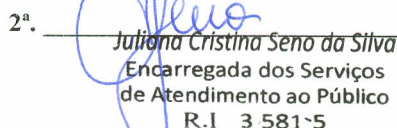 2ª.
Juliana Cristina Seno da Silva
Encarregada dos Serviços
de Atendimento ao Público
R.I 3.581-5